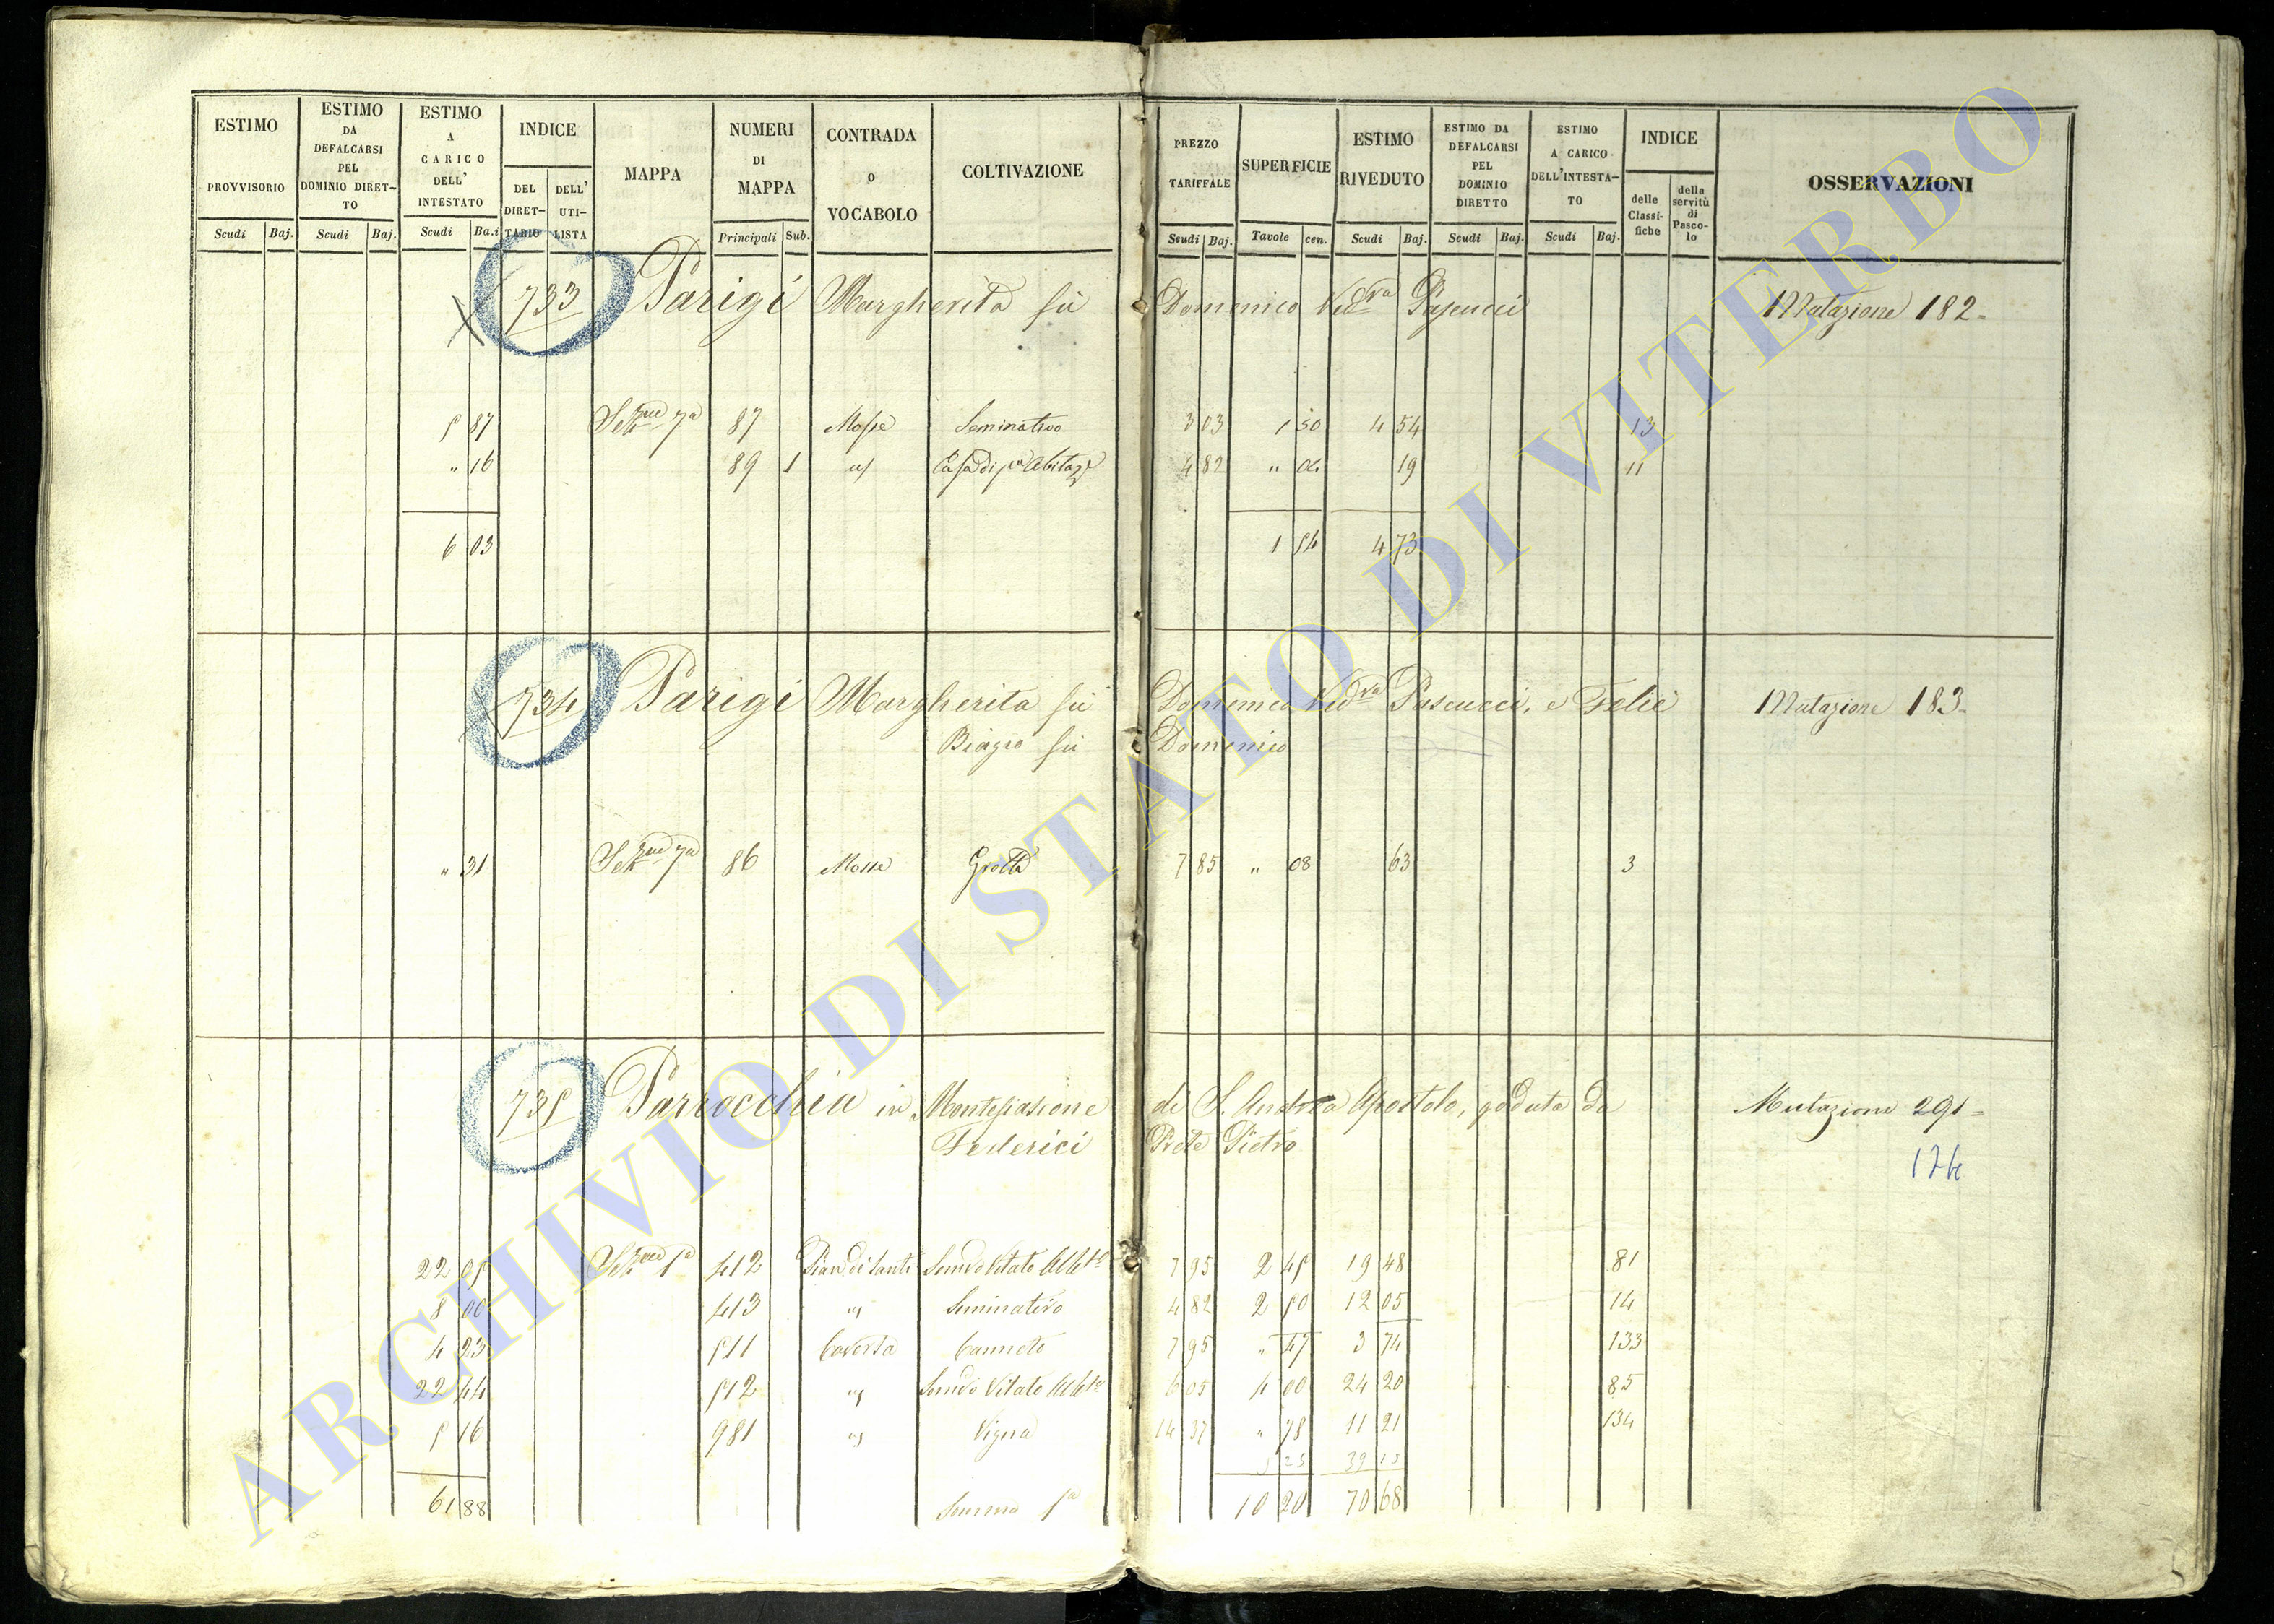 ESTIMO PROVVISORIO
ESTIMO DA DEFALCARSI PEL DOMINIO DIRET-TO
ESTIMO A CARICO DELL' INTESTATO
INDICE
DEL DIRET-TARIO
DELL' UTI-LISTA
MAPPA
NUMERI DI MAPPA
CONTRADA O VOCABOLO
COLTIVAZIONE
PREZZO TARIFFALE
SUPERFICIE
ESTIMO RIVEDUTO
ESTIMO DA DEFALCARSI PEL DOMINIO DIRETTO
ESTIMO A CARICO DELL'INTESTA-TO
INDICE
delle Classi-fiche
della servitù di Pasco-lo
OSSERVAZIONI
Scudi Baj. Scudi Baj. Scudi Ba.i Principali Sub. Scudi Baj. Tavole cen. Scudi Baj. Scudi Baj. Scudi Baj.
733 Parigi Margherita fù Domenico Ved.va Pascucci Mutazione 182
5 87 Sez.ne 7a 87 Mosse Seminativo 3 03 1 50 4 54 13
" 16 89 1 " Casa di pa Abitaze 4 82 " 04 19 11
6 03 1 54 4 73
734 Parigi Margherita fù Domenico Ved.va Pascucci, e Felic Mutazione 183
Biagio fù Domenico
" 31 Sez.ne 7a 86 Mosse Grotta 7 85 " 08 63 3
735 Parrocchia in Montefiascone di S. Andrea Apostolo, goduta da Mutazione 291
Federici Prete Pietro
174
22 05 Sez.ne 5a 412 Pian di Santi Semvo Vitato Alb.to 7 95 2 45 19 48 81
8 00 413 " Seminativo 4 82 2 50 12 05 14
4 23 511 Caversa Canneto 7 95 " 47 3 74 133
22 44 512 " Semvo Vitato Alb.to 6 05 4 00 24 20 85
5 16 981 " Vigna 14 37 " 78 11 21 134
5 25 39 15
61 88 Somma 5a 10 20 70 68
ARCHIVIO DI STATO DI VITERBO